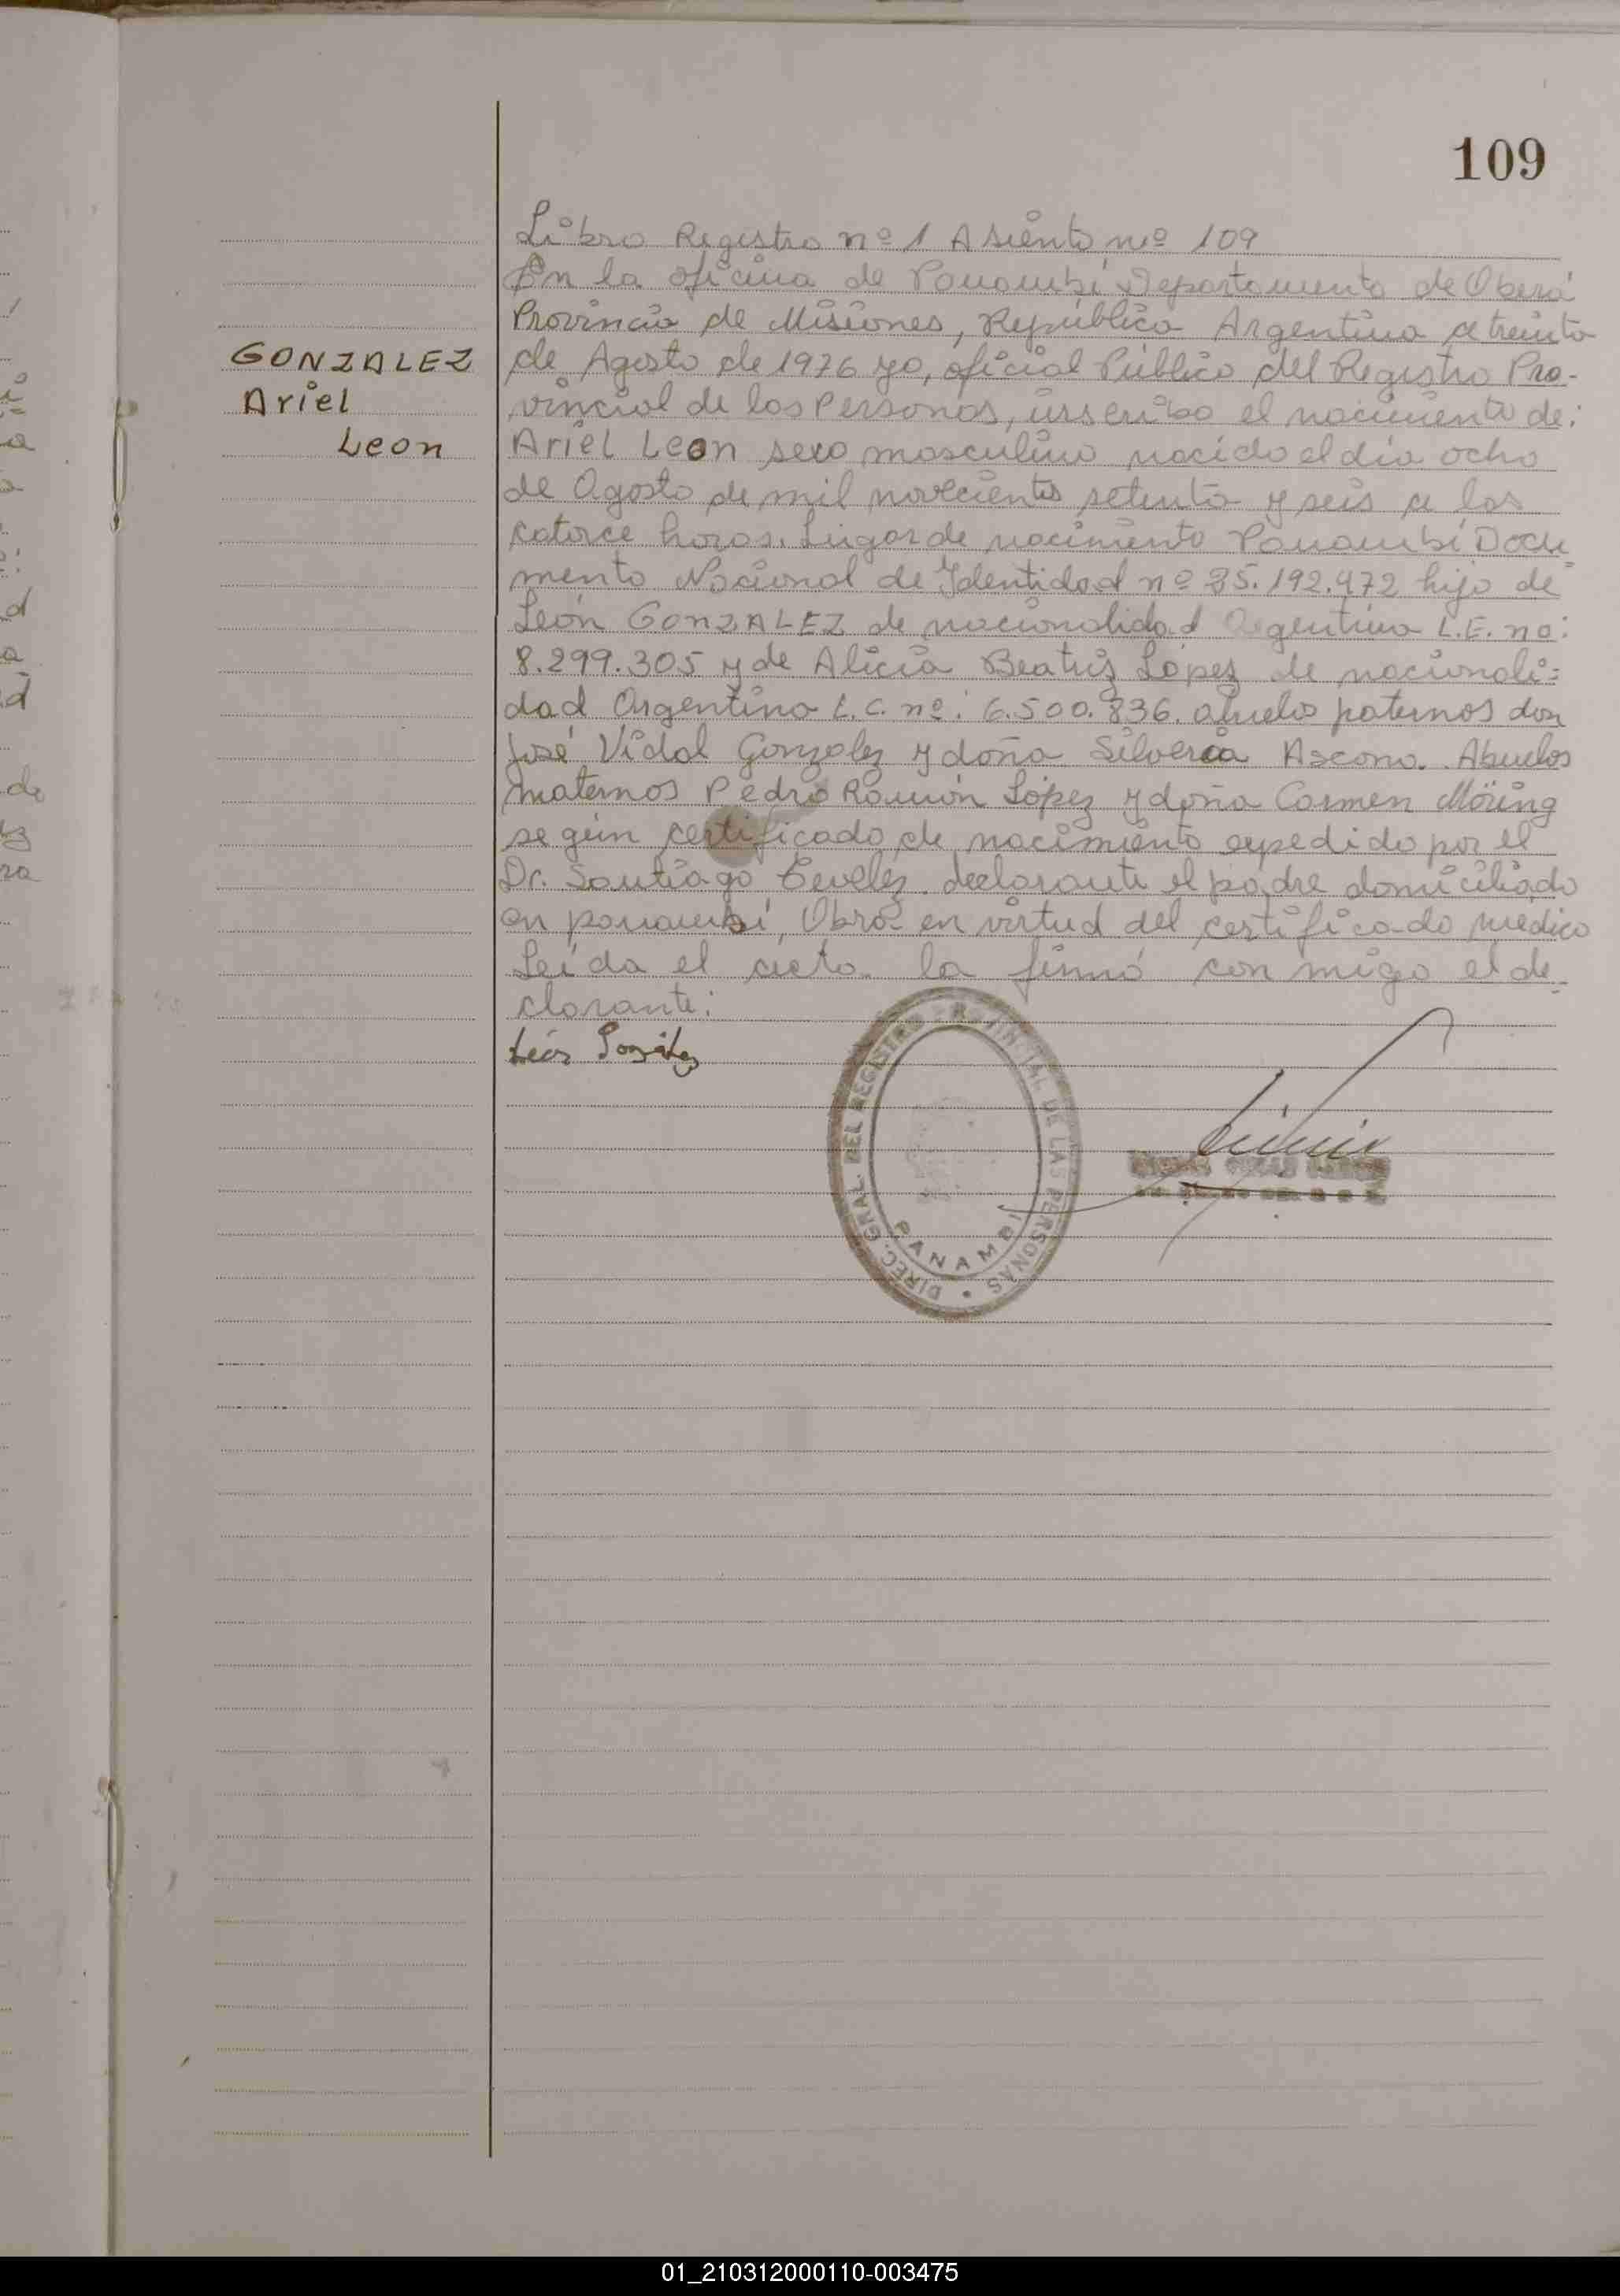 109
Libro Registro nº 1 Asiento nº 109
En la oficina de Panambí Departamento de Oberá
Provincia de Misiones, República Argentina a treinta
GONZALEZ
de Agosto de 1976 yo, oficial Público del Registro Pro-
Ariel
vincial de las Personas, inscribo el nacimiento de:
Leon
Ariel Leon sexo masculino nacido el día ocho
de Agosto de mil novecientos setenta y seis a las
catorce horas. Lugar de nacimiento Panambí Docu
mento Nacional de Identidad nº 25.192.972 hijo de
León GONZALEZ de nacionalidad Argentina L.E. nº:
8.299.305 y de Alicia Beatriz López de nacionali=
dad Argentina L.C. nº: 6.500.836. abuelos paternos don
José Vidal Gonzalez y doña Silveria Ascona. Abuelos
maternos Pedro Ramón López y doña Carmen Möring
según certificado de nacimiento expedido por el
Dr. Santiago declarante el padre domiciliado
en panambí, Obrá en virtud del certificado médico
Leída el acta la firmó con migo el de
clarante:
León González
DIREC. GRAL. DEL REGISTRO DE LAS PERSONAS
PANAMBI
01_210312000110-003475